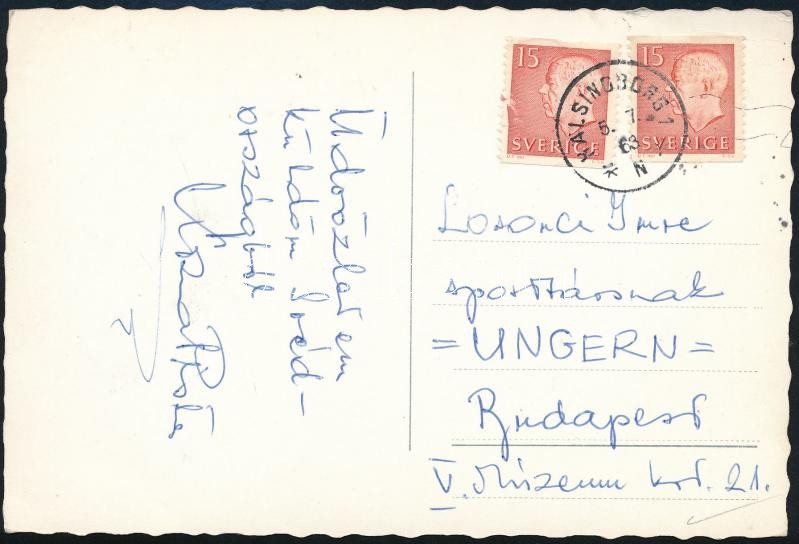 Üdvözletem
küldöm Svéd-
országból
15
SVERIGE
15
SVERIGE
HÄLSINGBORG 1
5. 7.
63
* N
Losonci Imre
sporttársnak
= UNGERN =
Budapest
V. Múzeum krt. 21.